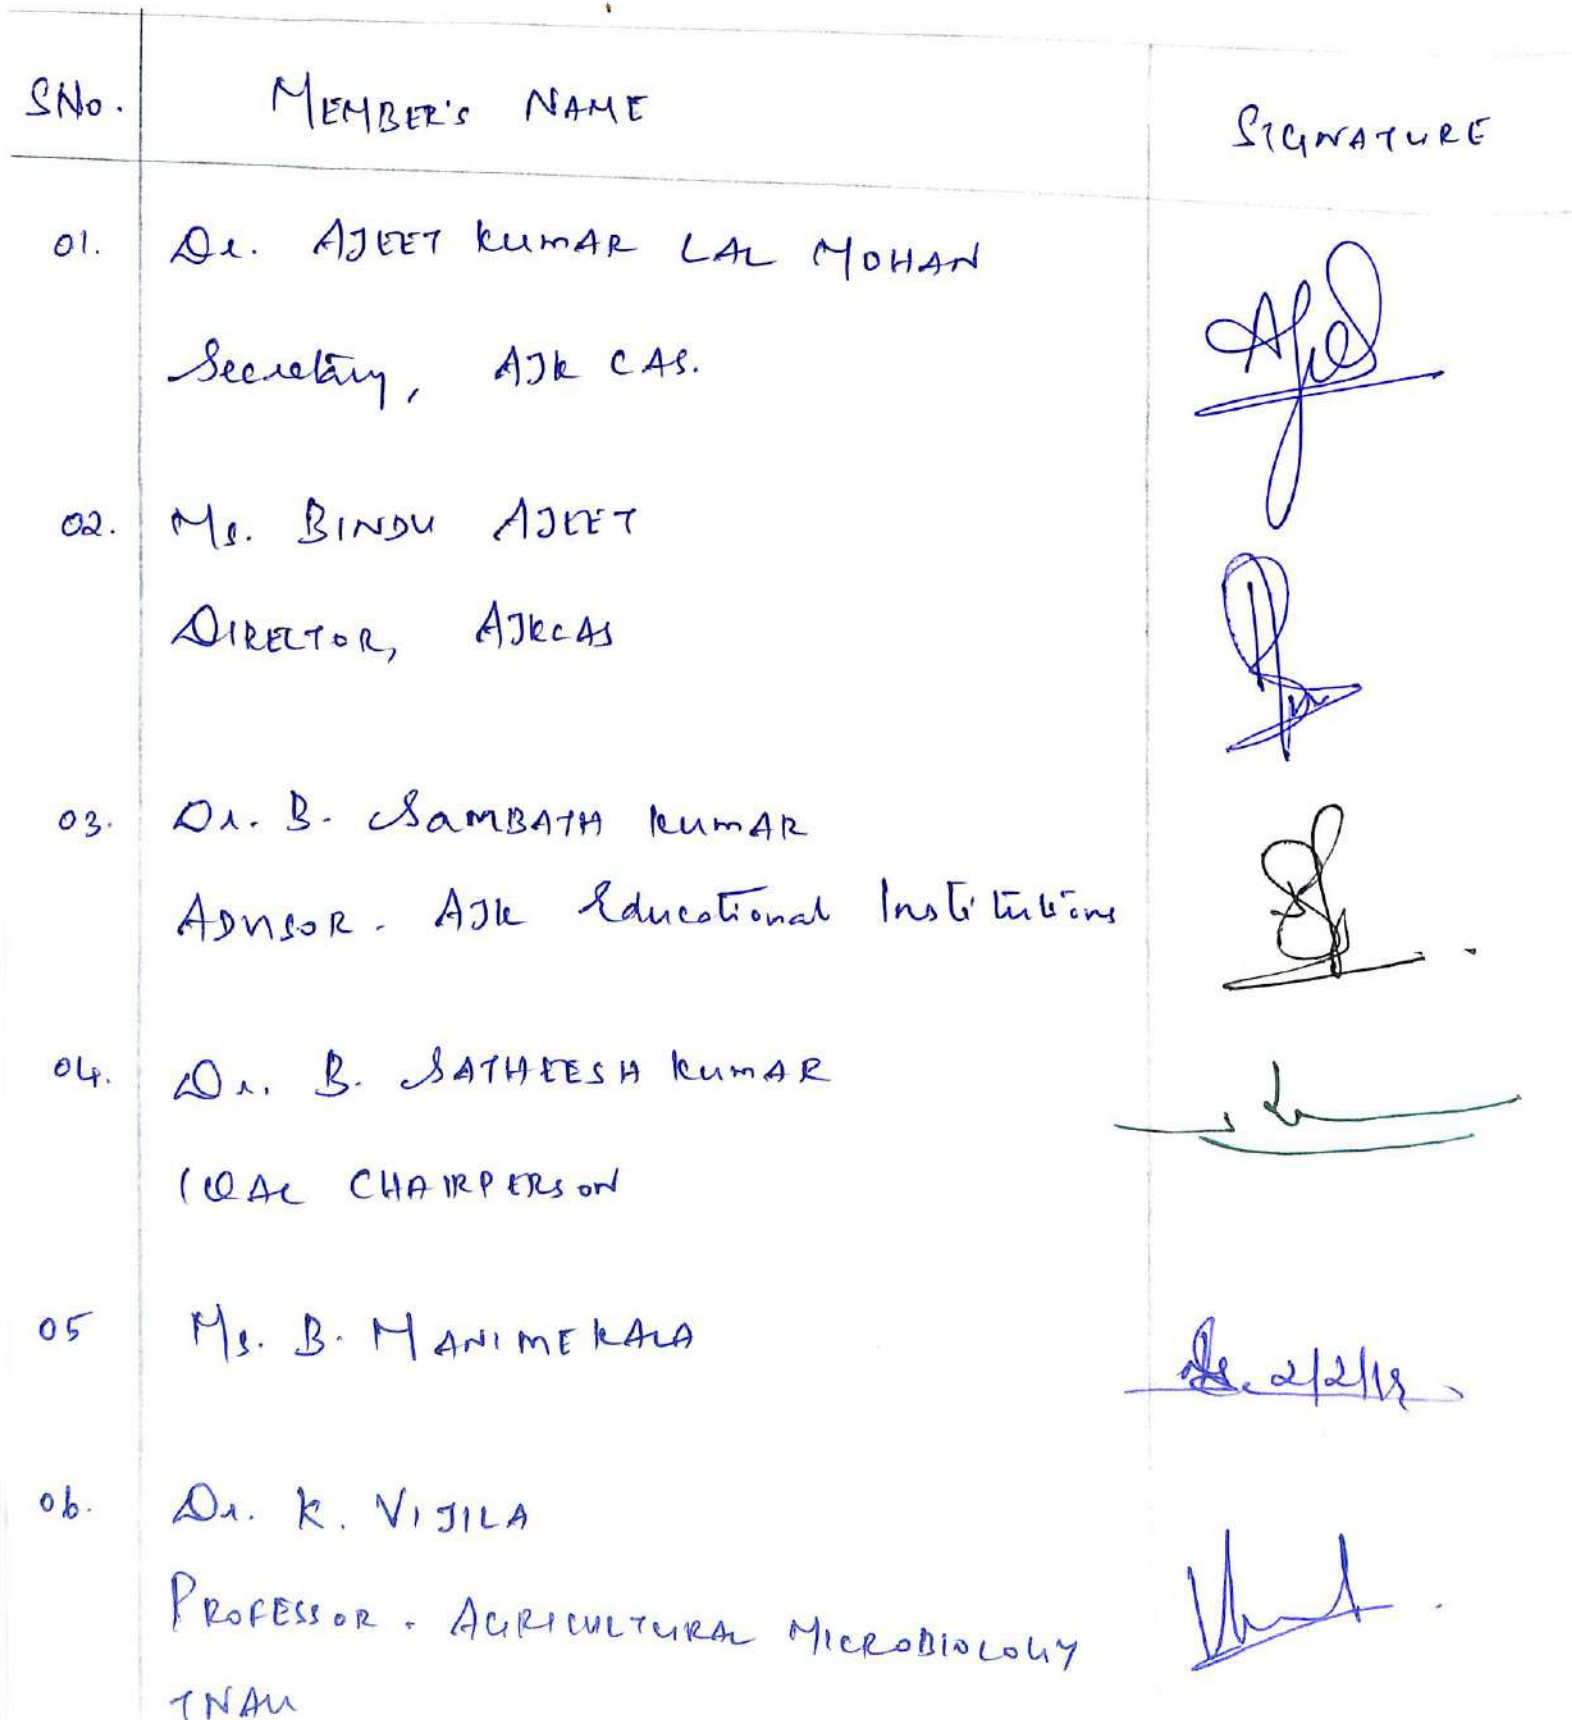 SNo. MEMBER'S NAME SIGNATURE
01. Dr. AJEET KUMAR LAL MOHAN
Secretary, AJK CAS.
02. Ms. BINDU AJEET
DIRECTOR, AJKCAS
03. Dr. B. SAMBATH KUMAR
ADVISOR - AJK Educational Institutions
04. Dr. B. SATHEESH KUMAR
IQAC CHAIRPERSON
05 Ms. B. MANIMEKALA
2/2/18
06. Dr. K. VIJILA
PROFESSOR - AGRICULTURAL MICROBIOLOGY
TNAU